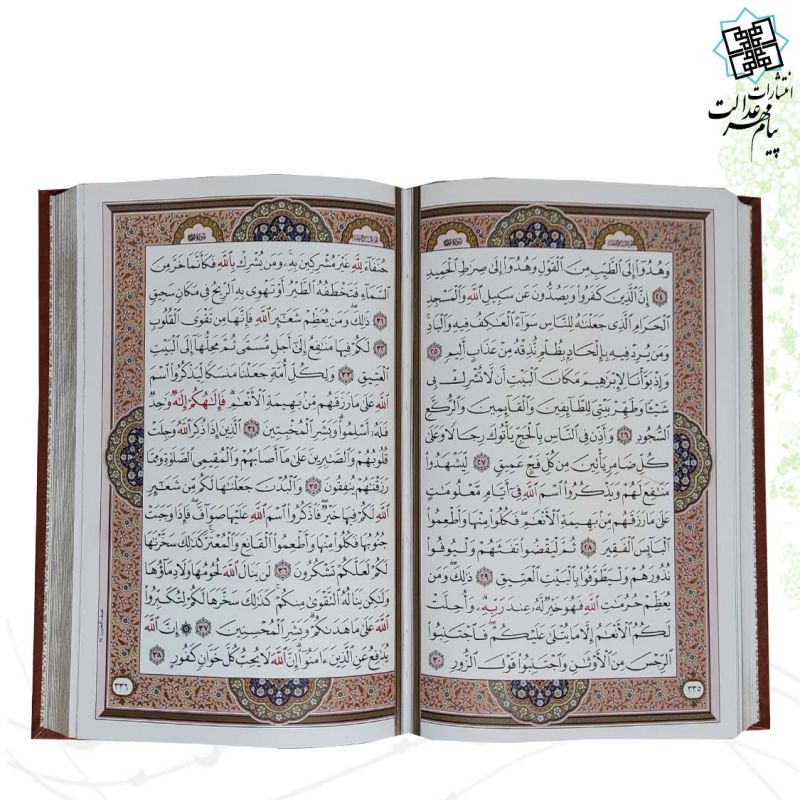 انتشارات
پیام مهر عدالت
وَهُدُوٓا إِلَى ٱلطَّيِّبِ مِنَ ٱلْقَوْلِ وَهُدُوٓا إِلَىٰ صِرَٰطِ ٱلْحَمِيدِ
٢٤ إِنَّ ٱلَّذِينَ كَفَرُوا وَيَصُدُّونَ عَن سَبِيلِ ٱللَّهِ وَٱلْمَسْجِدِ
ٱلْحَرَامِ ٱلَّذِي جَعَلْنَٰهُ لِلنَّاسِ سَوَآءً ٱلْعَٰكِفُ فِيهِ وَٱلْبَادِ ۚ
وَمَن يُرِدْ فِيهِ بِإِلْحَادٍۭ بِظُلْمٍ نُّذِقْهُ مِنْ عَذَابٍ أَلِيمٍ ٢٥
وَإِذْ بَوَّأْنَا لِإِبْرَٰهِيمَ مَكَانَ ٱلْبَيْتِ أَن لَّا تُشْرِكْ بِي
شَيْئًا وَطَهِّرْ بَيْتِيَ لِلطَّآئِفِينَ وَٱلْقَآئِمِينَ وَٱلرُّكَّعِ
ٱلسُّجُودِ ٢٦ وَأَذِّن فِي ٱلنَّاسِ بِٱلْحَجِّ يَأْتُوكَ رِجَالًا وَعَلَىٰ
كُلِّ ضَامِرٍ يَأْتِينَ مِن كُلِّ فَجٍّ عَمِيقٍ ٢٧ لِّيَشْهَدُوا
مَنَٰفِعَ لَهُمْ وَيَذْكُرُوا ٱسْمَ ٱللَّهِ فِيٓ أَيَّامٍ مَّعْلُومَٰتٍ
عَلَىٰ مَا رَزَقَهُم مِّنۢ بَهِيمَةِ ٱلْأَنْعَٰمِ ۖ فَكُلُوا مِنْهَا وَأَطْعِمُوا
ٱلْبَآئِسَ ٱلْفَقِيرَ ٢٨ ثُمَّ لْيَقْضُوا تَفَثَهُمْ وَلْيُوفُوا
نُذُورَهُمْ وَلْيَطَّوَّفُوا بِٱلْبَيْتِ ٱلْعَتِيقِ ٢٩ ذَٰلِكَ وَمَن
يُعَظِّمْ حُرُمَٰتِ ٱللَّهِ فَهُوَ خَيْرٌ لَّهُۥ عِندَ رَبِّهِۦ ۗ وَأُحِلَّتْ
لَكُمُ ٱلْأَنْعَٰمُ إِلَّا مَا يُتْلَىٰ عَلَيْكُمْ ۖ فَٱجْتَنِبُوا
ٱلرِّجْسَ مِنَ ٱلْأَوْثَٰنِ وَٱجْتَنِبُوا قَوْلَ ٱلزُّورِ ٣٠
٣٣٥
حُنَفَآءَ لِلَّهِ غَيْرَ مُشْرِكِينَ بِهِۦ ۚ وَمَن يُشْرِكْ بِٱللَّهِ فَكَأَنَّمَا خَرَّ مِنَ
ٱلسَّمَآءِ فَتَخْطَفُهُ ٱلطَّيْرُ أَوْ تَهْوِي بِهِ ٱلرِّيحُ فِي مَكَانٍ سَحِيقٍ
٣١ ذَٰلِكَ وَمَن يُعَظِّمْ شَعَٰٓئِرَ ٱللَّهِ فَإِنَّهَا مِن تَقْوَى ٱلْقُلُوبِ
٣٢ لَكُمْ فِيهَا مَنَٰفِعُ إِلَىٰٓ أَجَلٍ مُّسَمًّى ثُمَّ مَحِلُّهَآ إِلَى ٱلْبَيْتِ
ٱلْعَتِيقِ ٣٣ وَلِكُلِّ أُمَّةٍ جَعَلْنَا مَنسَكًا لِّيَذْكُرُوا ٱسْمَ
ٱللَّهِ عَلَىٰ مَا رَزَقَهُم مِّنۢ بَهِيمَةِ ٱلْأَنْعَٰمِ ۗ فَإِلَٰهُكُمْ إِلَٰهٌ وَٰحِدٌ
فَلَهُۥٓ أَسْلِمُوا ۗ وَبَشِّرِ ٱلْمُخْبِتِينَ ٣٤ ٱلَّذِينَ إِذَا ذُكِرَ ٱللَّهُ وَجِلَتْ
قُلُوبُهُمْ وَٱلصَّٰبِرِينَ عَلَىٰ مَآ أَصَابَهُمْ وَٱلْمُقِيمِي ٱلصَّلَوٰةِ وَمِمَّا
رَزَقْنَٰهُمْ يُنفِقُونَ ٣٥ وَٱلْبُدْنَ جَعَلْنَٰهَا لَكُم مِّن شَعَٰٓئِرِ
ٱللَّهِ لَكُمْ فِيهَا خَيْرٌ ۖ فَٱذْكُرُوا ٱسْمَ ٱللَّهِ عَلَيْهَا صَوَآفَّ ۖ فَإِذَا وَجَبَتْ
جُنُوبُهَا فَكُلُوا مِنْهَا وَأَطْعِمُوا ٱلْقَانِعَ وَٱلْمُعْتَرَّ ۚ كَذَٰلِكَ سَخَّرْنَٰهَا
لَكُمْ لَعَلَّكُمْ تَشْكُرُونَ ٣٦ لَن يَنَالَ ٱللَّهَ لُحُومُهَا وَلَا دِمَآؤُهَا
وَلَٰكِن يَنَالُهُ ٱلتَّقْوَىٰ مِنكُمْ ۚ كَذَٰلِكَ سَخَّرَهَا لَكُمْ لِتُكَبِّرُوا
ٱللَّهَ عَلَىٰ مَا هَدَىٰكُمْ ۗ وَبَشِّرِ ٱلْمُحْسِنِينَ ٣٧ ۞ إِنَّ ٱللَّهَ
يُدَٰفِعُ عَنِ ٱلَّذِينَ ءَامَنُوٓا ۗ إِنَّ ٱللَّهَ لَا يُحِبُّ كُلَّ خَوَّانٍ كَفُورٍ ٣٨
٣٣٦